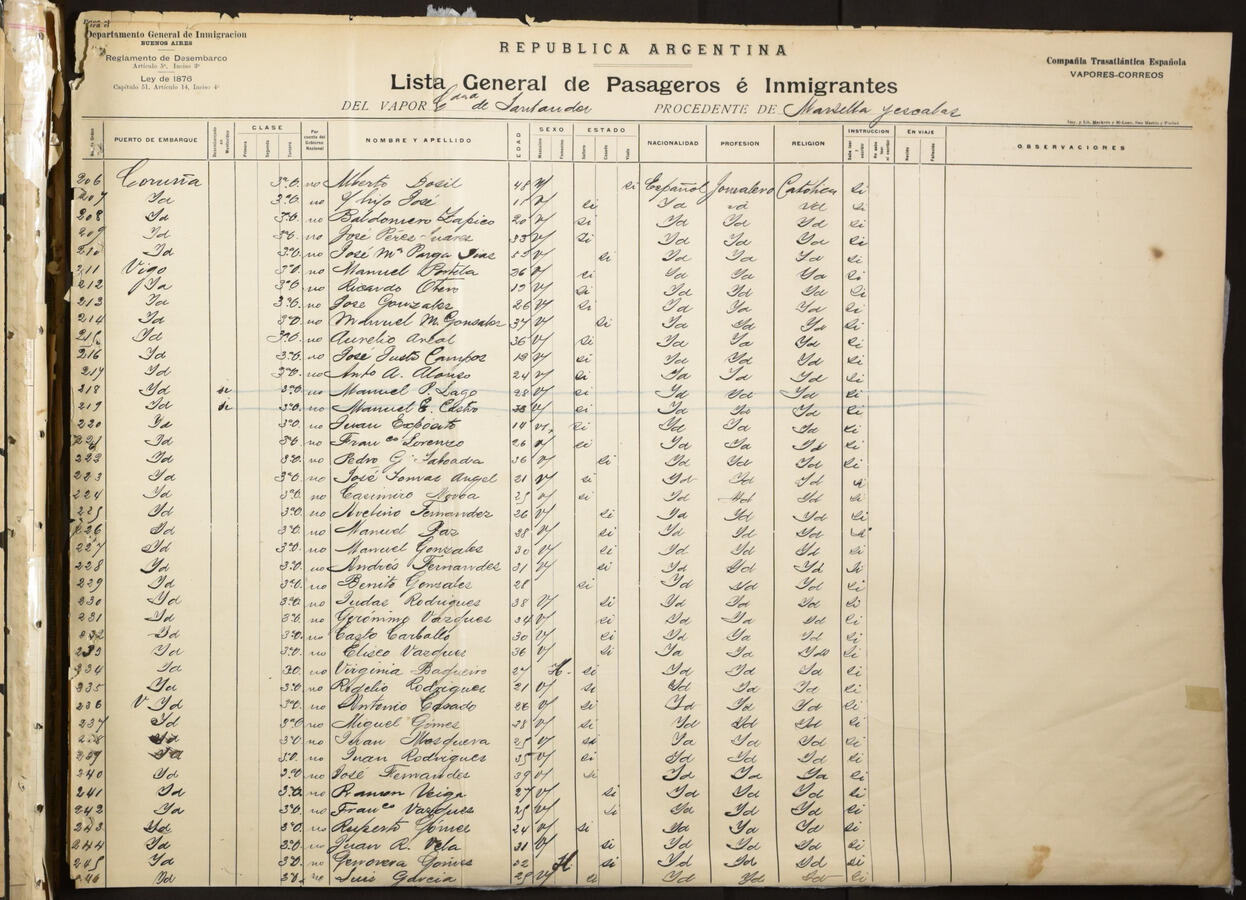 Departamento General de Inmigracion
BUENOS AIRES
Reglamento de Desembarco
Artículo 5º, Inciso 3º
Ley de 1876
Capítulo 51, Artículo 14, Inciso 4º
REPUBLICA ARGENTINA
Lista General de Pasageros é Inmigrantes
DEL VAPOR Cdad de Santander PROCEDENTE DE Marsella y escalas
Compañía Trasatlántica Española
VAPORES-CORREOS
PUERTO DE EMBARQUE CLASE Primera Segunda Tercera Por cuenta del Gobierno Nacional NOMBRE Y APELLIDO EDAD SEXO Masculino Femenino ESTADO Soltero Casado Viudo NACIONALIDAD PROFESION RELIGION INSTRUCCION EN VIAJE OBSERVACIONES
206 Coruña 3ª O. no Alberto Bosil 48 V si Español Jornalero Católica si
207 Id 3ª O. no Y hijo José 11 V si Id id Id si
208 Id 3ª O. no Baldomero Lapico 20 V si Id Id Id si
209 Id 3ª O. no José Péres Suares 33 V si Id Id Id si
210 Id 3ª O. no José Mª Parga Dias V si Id Id Id si
211 Vigo 3ª O. no Manuel Portela 36 V si Id Id Id si
212 Id 3ª O. no Ricardo Otero 19 V si Id Id Id si
213 Id 3ª O. no José Gonzales 26 V si Id Id Id si
214 Id 3ª O. no Manuel M. Gonsales 37 V si Id Id Id si
215 Id 3ª O. no Aurelio Areal 36 V si Id Id Id si
216 Id 3ª O. no José Justo Campos 19 V si Id Id Id si
217 Id 3ª O. no Anto A. Alonso 24 V si Id Id Id si
218 Id si 3ª O. no Manuel P. Lago 28 V si Id Id Id si
219 Id si 3ª O. no Manuel E. Castro V si Id Id Id si
220 Id 3ª O. no Juan Expósito 14 V si Id Id Id si
221 Id 3ª O. no Franco Lorenzo 26 V si Id Id Id si
222 Id 3ª O. no Pedro G. Taboada 36 V si Id Id Id si
223 Id 3ª O. no José Tomas Angel 21 V si Id Id Id si
224 Id 3ª O. no Casimiro Novoa 25 V si Id Id Id si
225 Id 3ª O. no Avelino Fernandez 26 V si Id Id Id si
226 Id 3ª O. no Manuel Paz 38 V si Id Id Id si
227 Id 3ª O. no Manuel Gonzales 30 V si Id Id Id si
228 Id 3ª O. no Andrés Fernandes 31 V si Id Id Id si
229 Id 3ª O. no Benito Gonsales 28 si Id Id Id si
230 Id 3ª O. no Judas Rodrigues 38 V si Id Id Id si
231 Id 3ª O. no Gerónimo Vazques 34 V si Id Id Id si
232 Id 3ª O. no Casto Carballo 30 V si Id Id Id si
233 Id 3ª O. no Eliseo Vazques 36 V si Id Id Id si
234 Id 3ª O. no Virginia Baqueiro 27 H. si Id Id Id si
235 Id 3ª O. no Rogelio Rodrigues 21 V si Id Id Id si
236 V Id 3ª O. no Antonio Casado 26 V si Id Id Id si
237 Id 3ª O. no Miguel Gómes 28 V si Id Id Id si
238 Id 3ª O. no Juan Mosquera 25 V si Id Id Id si
239 Id 3ª O. no Juan Rodrigues 35 V si Id Id Id si
240 Id 3ª O. no José Fernandes 39 V si Id Id Id si
241 Id 3ª O. no Ramon Veiga 27 V si Id Id Id si
242 Id 3ª O. no Franco Vazques 25 V si Id Id Id si
243 Id 3ª O. no Ruperto Gómes 24 V si Id Id Id si
244 Id 3ª O. no Juan R. Vela 31 V si Id Id Id si
245 Id 3ª O. no Genoveva Gómes 32 H si Id Id Id si
246 Id 3ª O. no Luis Garcia 25 V si Id Id Id si